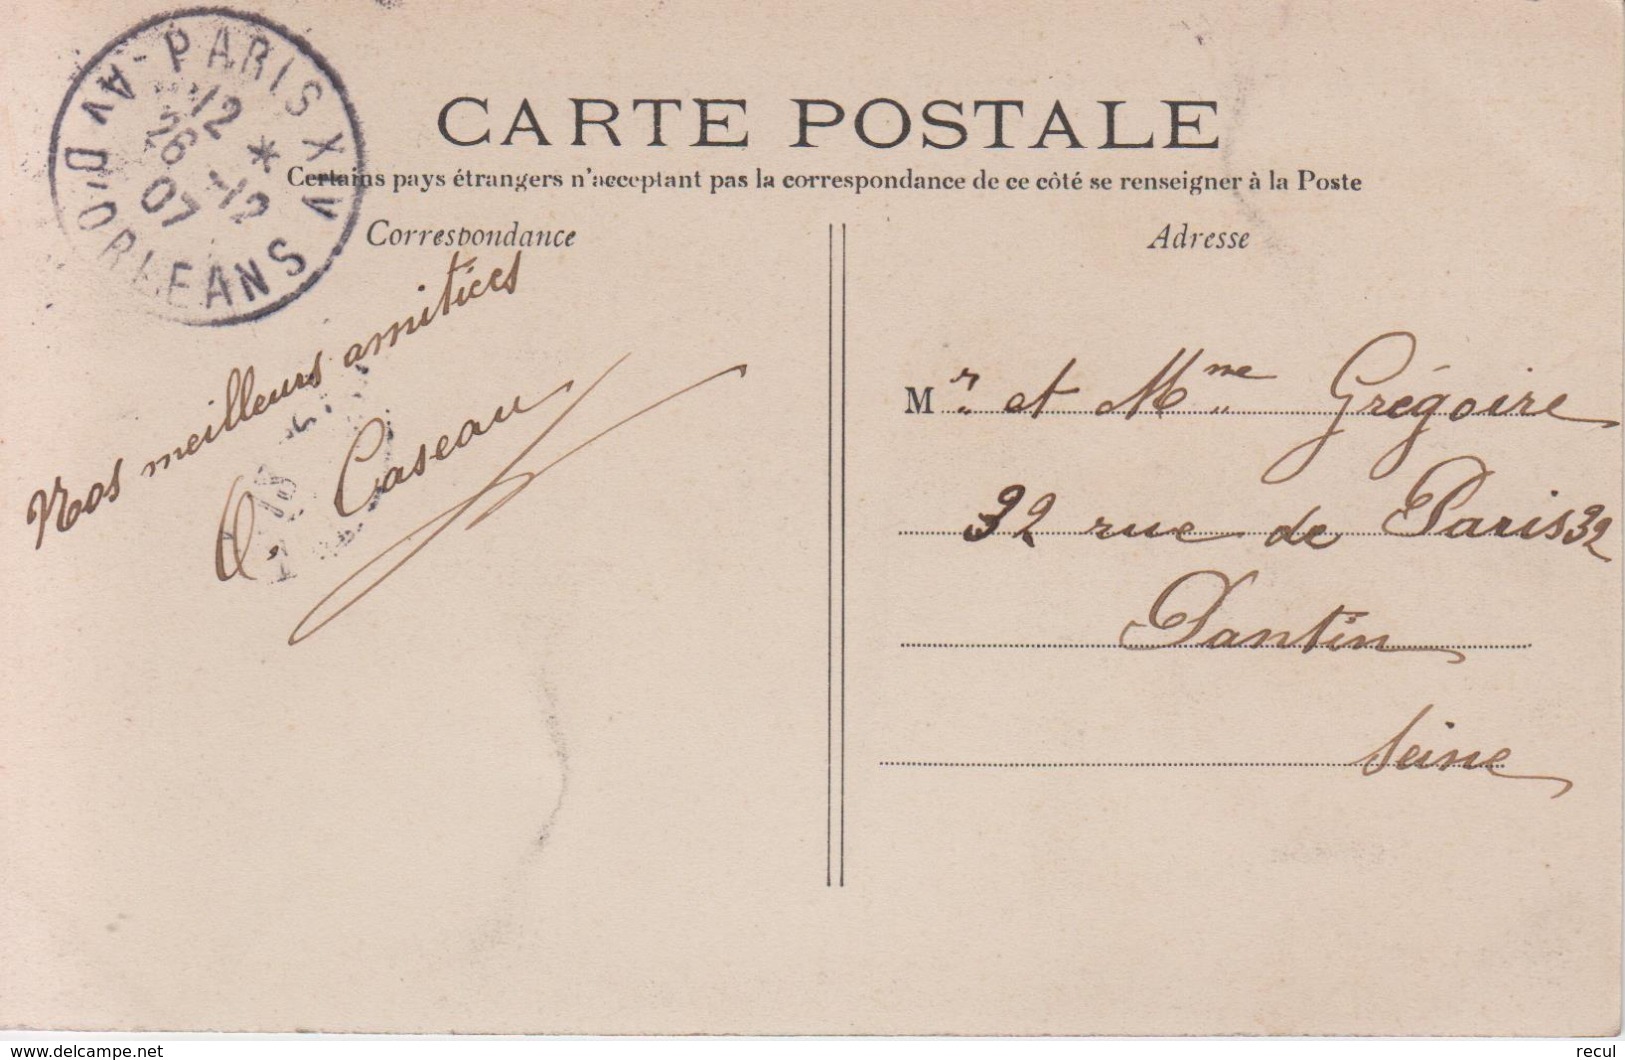 PARIS XIV
AV. D'ORLEANS
12 *
26 -12
07
CARTE POSTALE
Certains pays étrangers n'acceptant pas la correspondance de ce côté se renseigner à la Poste
Correspondance
Adresse
Nos meilleurs amitiés
Caseau
Mr. et Mme Grégoire
32 rue de Paris 32
Pantin
Seine
www.delcampe.net
recul